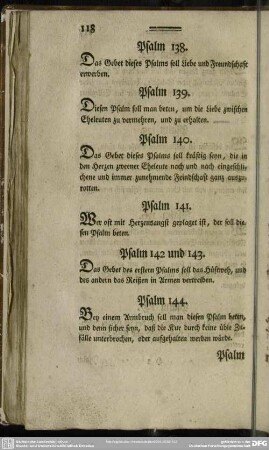 118
Psalm 138.
Das Gebet dieses Psalms soll Liebe und Freundschaft
erwerben.
Psalm 139.
Diesen Psalm soll man beten, um die Liebe zwischen
Eheleuten zu vermehren, und zu erhalten.
Psalm 140.
Das Gebet dieses Psalms soll kräftig seyn, die in
den Herzen zweener Eheleute nach und nach eingeschli-
chene und immer zunehmende Feindschaft ganz auszu-
rotten.
Psalm 141.
Wer oft mit Herzensangst geplaget ist, der soll die-
sen Psalm beten.
Psalm 142 und 143.
Das Gebet des erstern Psalms soll das Hüftweh, und
des andern das Reißen in Armen vertreiben.
Psalm 144.
Bey einem Armbruch soll man diesen Psalm beten,
und denn sicher seyn, daß die Kur durch keine üble Zu-
fälle unterbrochen, oder aufgehalten werden würde.
Psalm